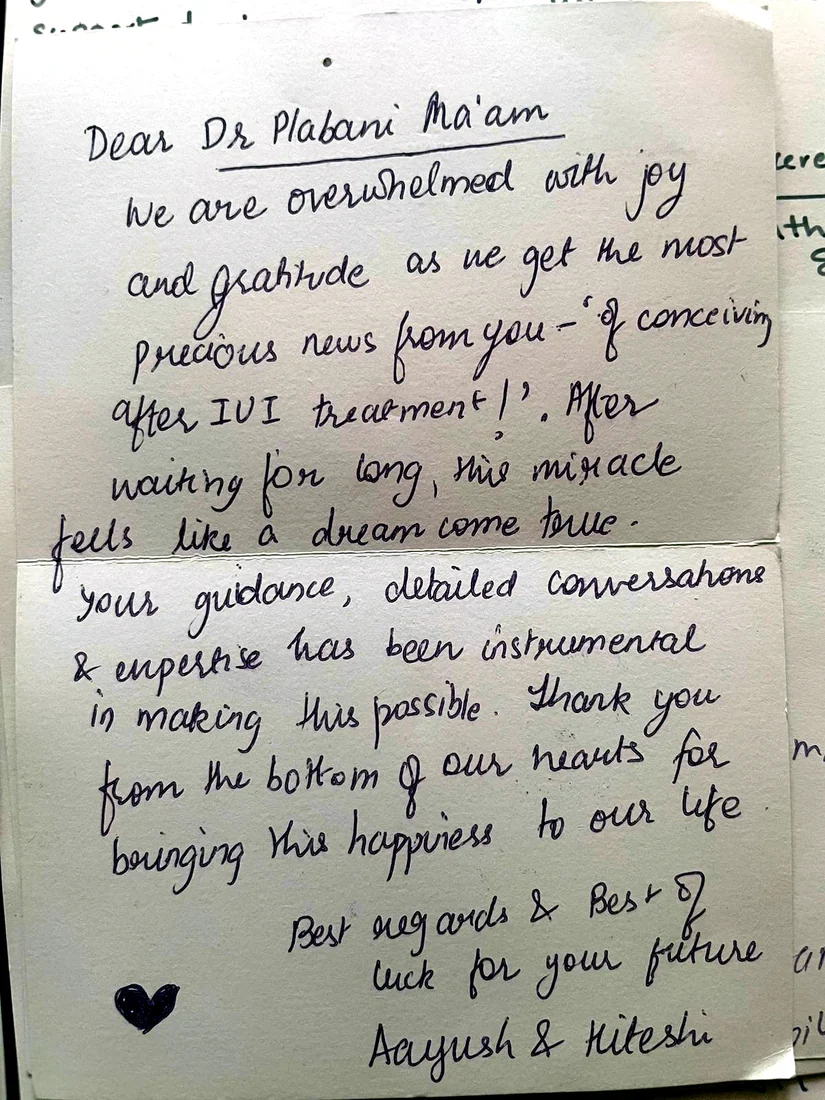 Dear Dr Plabani Ma'am
We are overwhelmed with joy
and gratitude as we get the most
precious news from you – 'of conceiving
after IUI treatment!'. After
waiting for long, this miracle
feels like a dream come true.
Your guidance, detailed conversations
& expertise has been instrumental
in making this possible. Thank you
from the bottom of our hearts for
bringing this happiness to our life
Best regards & Best of
luck for your future
Aayush & Hiteshi